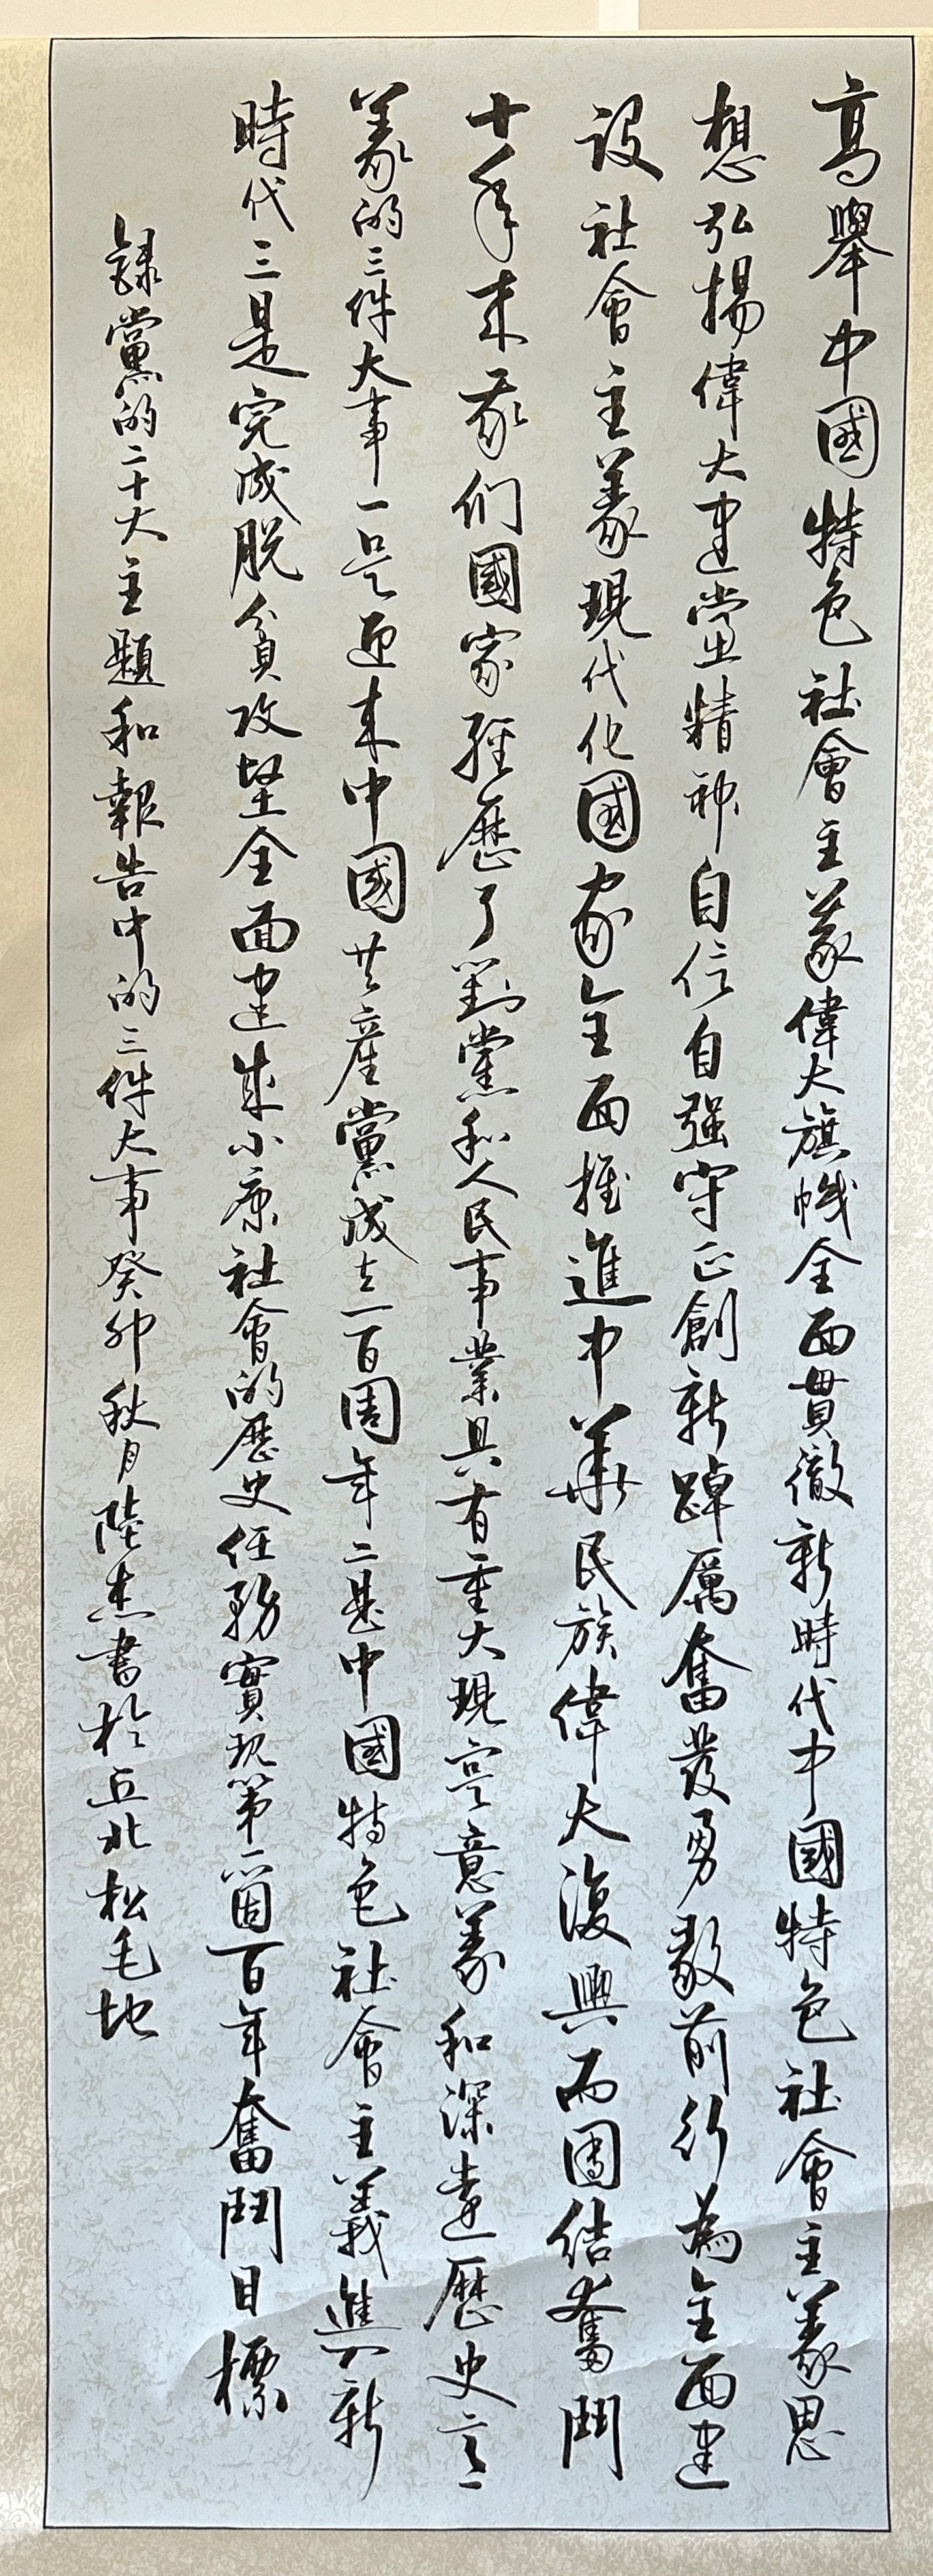 高舉中國特色社會主義偉大旗幟全面貫徹新時代中國特色社會主義思
想弘揚偉大建黨精神自信自强守正創新踔厲奮發勇毅前行為全面建
設社會主義現代化國家全面推進中華民族偉大復興而團结奮鬥
十年来我们國家經歷了對黨和人民事業具有重大現實意義和深遠歷史意
義的三件大事一是迎来中國共產黨成立一百周年二是中國特色社會主義進入新
時代三是完成脱貧攻堅全面建成小康社會的歷史任務實現第一個百年奮鬥目標
録黨的二十大主題和報告中的三件大事癸卯秋月陸杰書於丘北松毛地